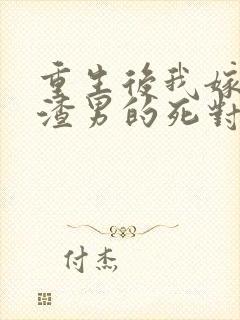 重生後我嫁
渣男的死對
付杰